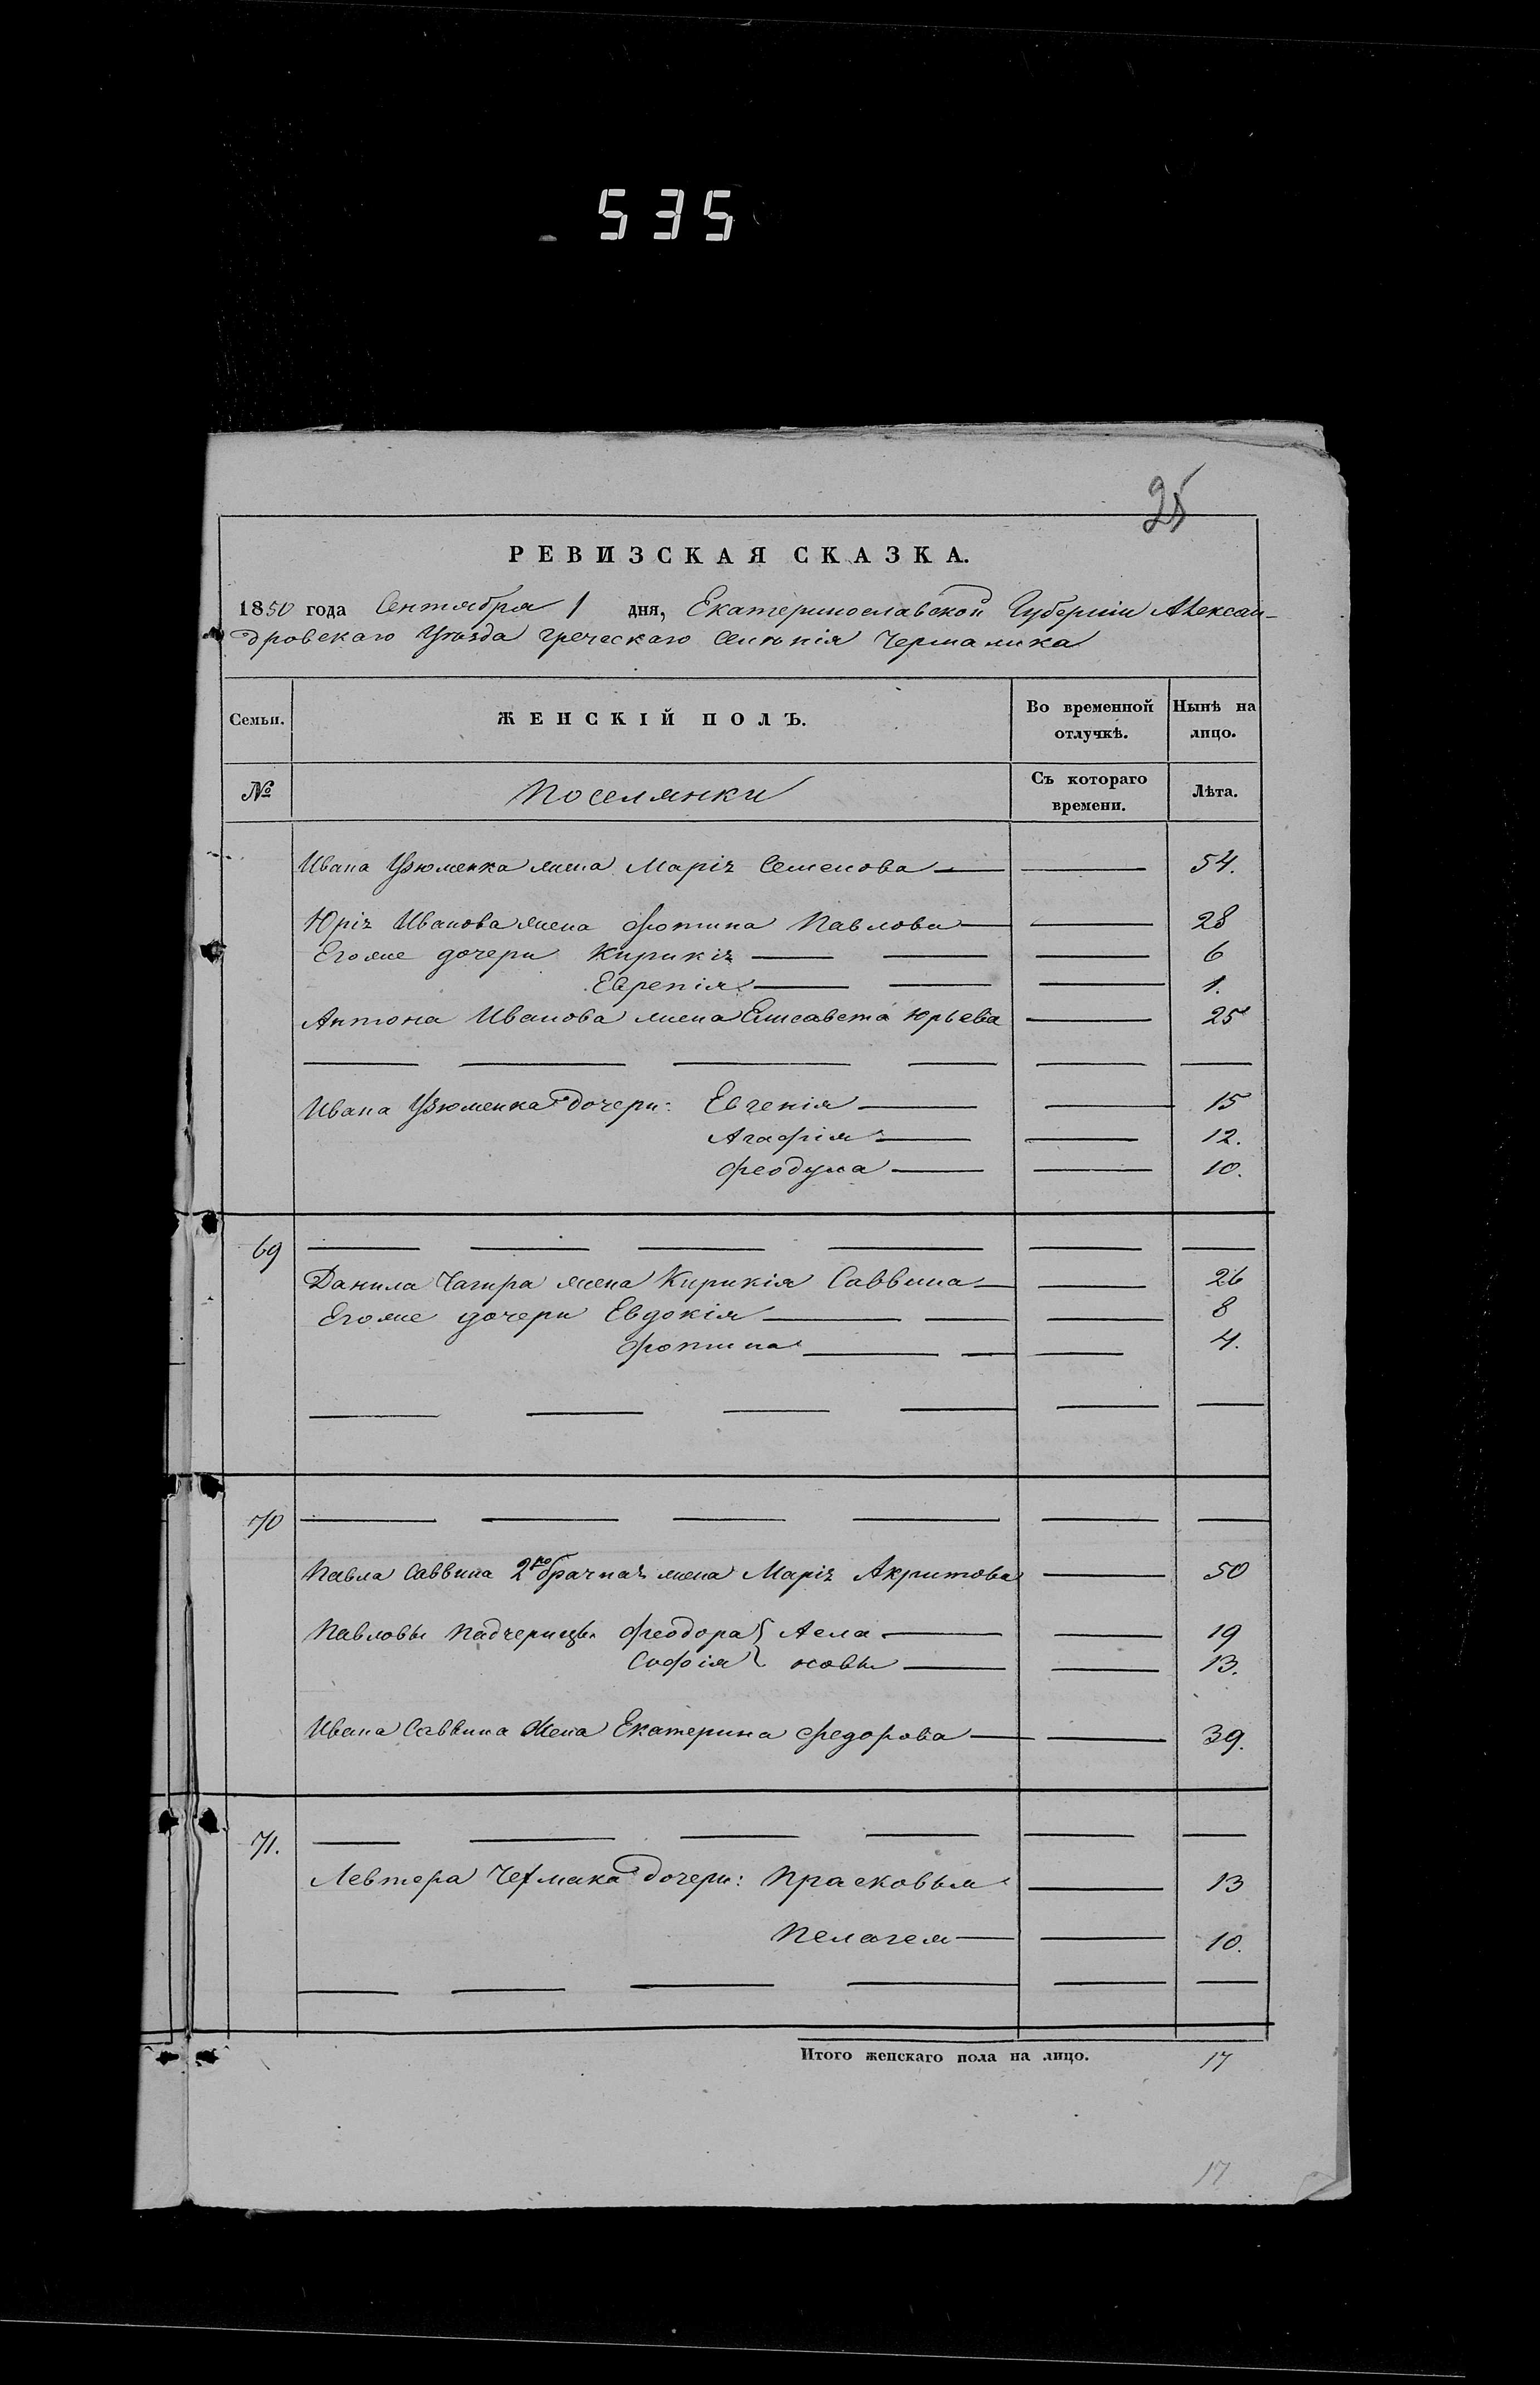 535
25
РЕВИЗСКАЯ СКАЗКА.
1850 года Сентября 1 дня, Екатеринославской Губерніи Алексан-
дровскаго Уѣзда греческаго Селенія Чермалика
Семьи. ЖЕНСКІЙ ПОЛЪ. Во временной отлучкѣ. Нынѣ на лицо.
№ Поселянки Съ котораго времени. Лѣта.
Ивана Узюменка жена Марія Семенова — — 54.
Юрія Иванова жена Фотина Павлова — — 28
Егоже дочери Кирикія — — — 6
Евгенія — — — 1.
Антона Иванова жена Елисавета Юрьева — 25
— — — — — —
Ивана Узюменка дочери: Евгенія — — 15
Агафія — — 12.
Феодула — — 10.
69 — — — — — —
Данила Чагира жена Кирикія Саввина — — 26
Егоже дочери Евдокія — — — 8
Фотина — — — 4.
— — — — — —
70 — — — — — —
Павла Саввина 2хобрачная жена Марія Акритова — 50
Павловы падчерицы Феодора } Асла — — 19
Софія } новы — — 13.
Ивана Саввина жена Екатерина Федорова — — 39.
71. — — — — — —
Левтера дочери: Прасковья — 13
Пелагея — — 10.
— — — — — —
Итого женскаго пола на лицо. 17
17